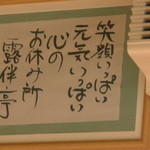 笑顔いっぱい
元気いっぱい
心の
お休み所
露伴亭